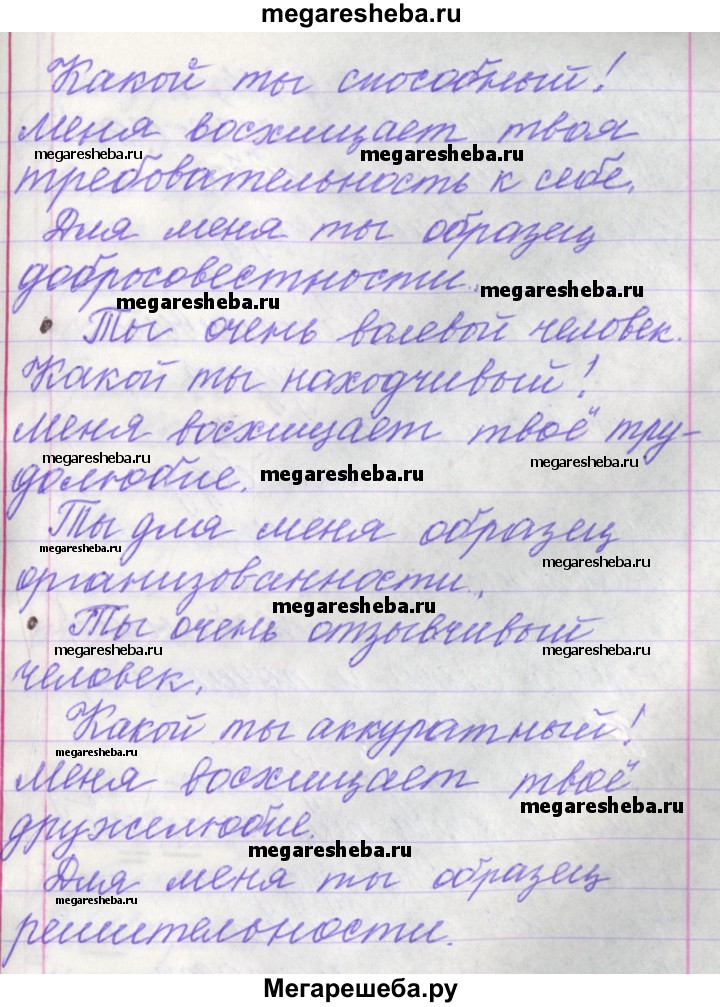 megaresheba.ru
Какой ты способный!
Меня восхищает твоя
megaresheba.ru megaresheba.ru
требовательность к себе.
Для меня ты образец
добросовестности.
megaresheba.ru megaresheba.ru
• Ты очень волевой человек.
Какой ты находчивый!
Меня восхищает твоё тру-
megaresheba.ru megaresheba.ru
долюбие. megaresheba.ru
Ты для меня образец
megaresheba.ru megaresheba.ru
организованности.
megaresheba.ru
• Ты очень отзывчивый
megaresheba.ru megaresheba.ru
человек.
Какой ты аккуратный!
megaresheba.ru
Меня восхищает твоё
megaresheba.ru
дружелюбие.
megaresheba.ru
Для меня ты образец
megaresheba.ru
решительности.
Мегарешеба.ру